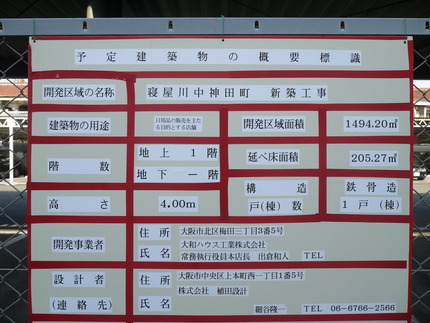 予定建築物の概要標識
開発区域の名称 寝屋川中神田町 新築工事
建築物の用途 日用品の販売を主たる目的とする店舗 開発区域面積 1494.20㎡
階数 地上1階 延べ床面積 205.27㎡
地下一階 構造 鉄骨造
高さ 4.00m 戸(棟)数 1戸(棟)
開発事業者 住所 大阪市北区梅田三丁目3番5号
氏名 大和ハウス工業株式会社
常務執行役員本店長 出倉和人 TEL
設計者 住所 大阪市中央区上本町西一丁目1番5号
(連絡先) 氏名 株式会社 植田設計
細谷隆一 TEL 06-6766-2566